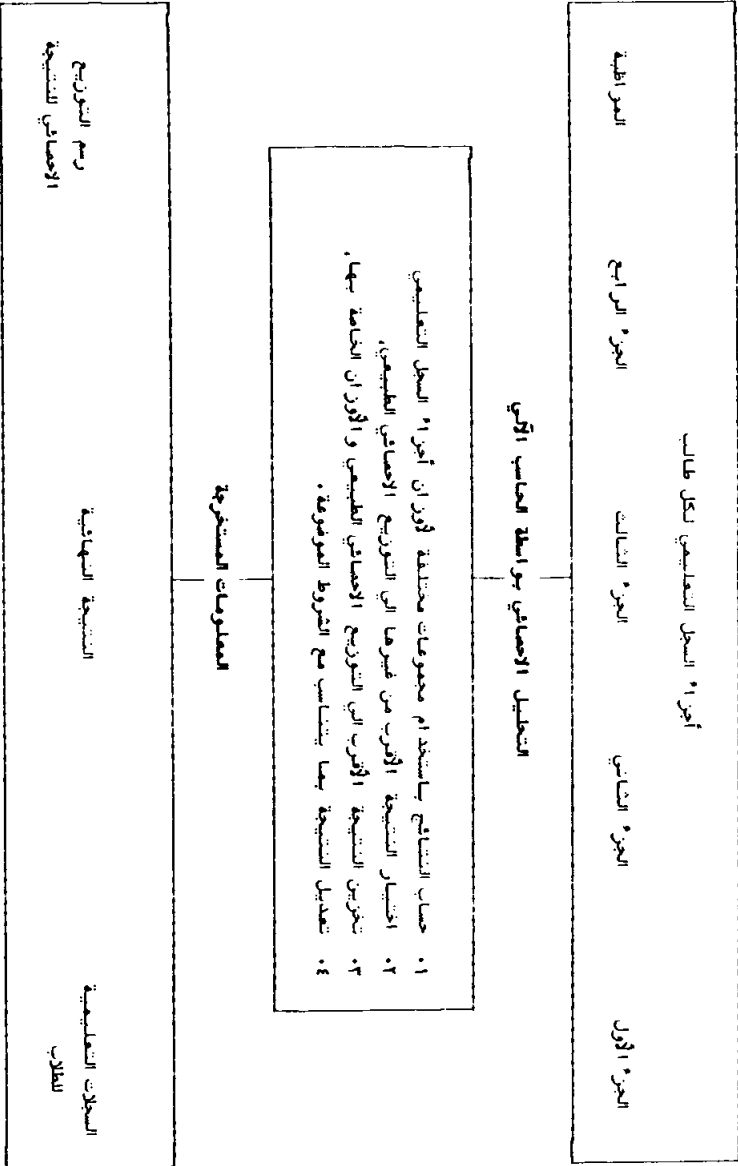 أجزاء السجل التعليمي لكل طالب
الجزء الأول الجزء الثاني الجزء الثالث الجزء الرابع المواظبة
التحليل الاحصائي بواسطة الحاسب الآلي
١. حساب النتائج باستخدام مجموعات مختلفة لأوزان أجزاء السجل التعليمي
٢. اختيار النتيجة الأقرب من غيرها الى التوزيع الاحصائي الطبيعي.
٣. تخزين النتيجة الأقرب الى التوزيع الاحصائي الطبيعي والأوزان الخاصة بها.
٤. تعديل النتيجة بما يتناسب مع الشروط الموضوعة.
المعلومات المستخرجة
السجلات التعليمية
للطلاب
النتيجة النهائية
رسم التوزيع
الاحصائي للنتيجة